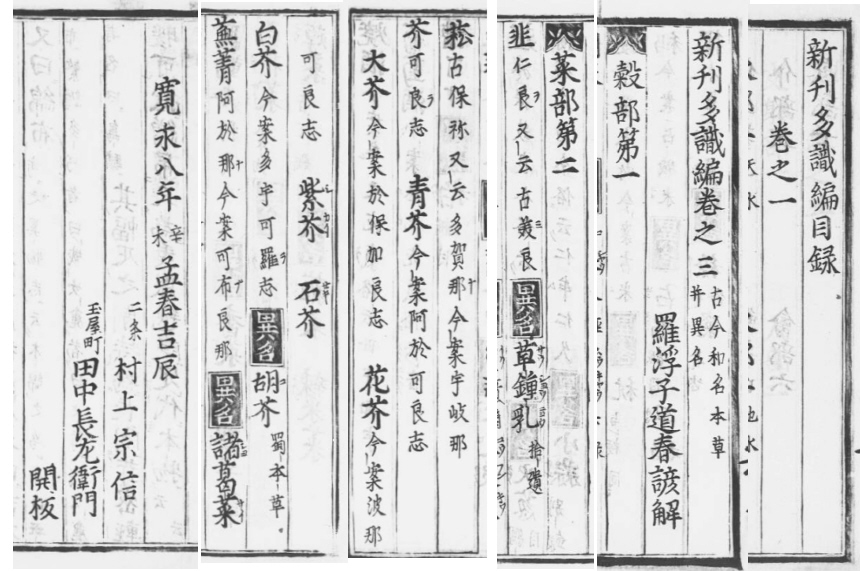 新刊多識編目録
巻之一
新刊多識編巻之三 古今和名本草并異名
羅浮子道春諺解
穀部第一
菜部第二
韭 仁良又云古美良 異名 草鍾乳 拾遺
菘 古保祢又云多賀那今案宇岐那
芥 可良志 青芥 今案阿於可良志
大芥 今案於保加良志 花芥 今案波那
可良志 紫芥 石芥
白芥 今案多宇可羅志 異名 胡芥 蜀本草
蕪菁 阿於那今案可布良那 異名 諸葛菜
寛永八年辛未孟春吉辰
二条 村上宗信
玉屋町 田中長左衛門
開板